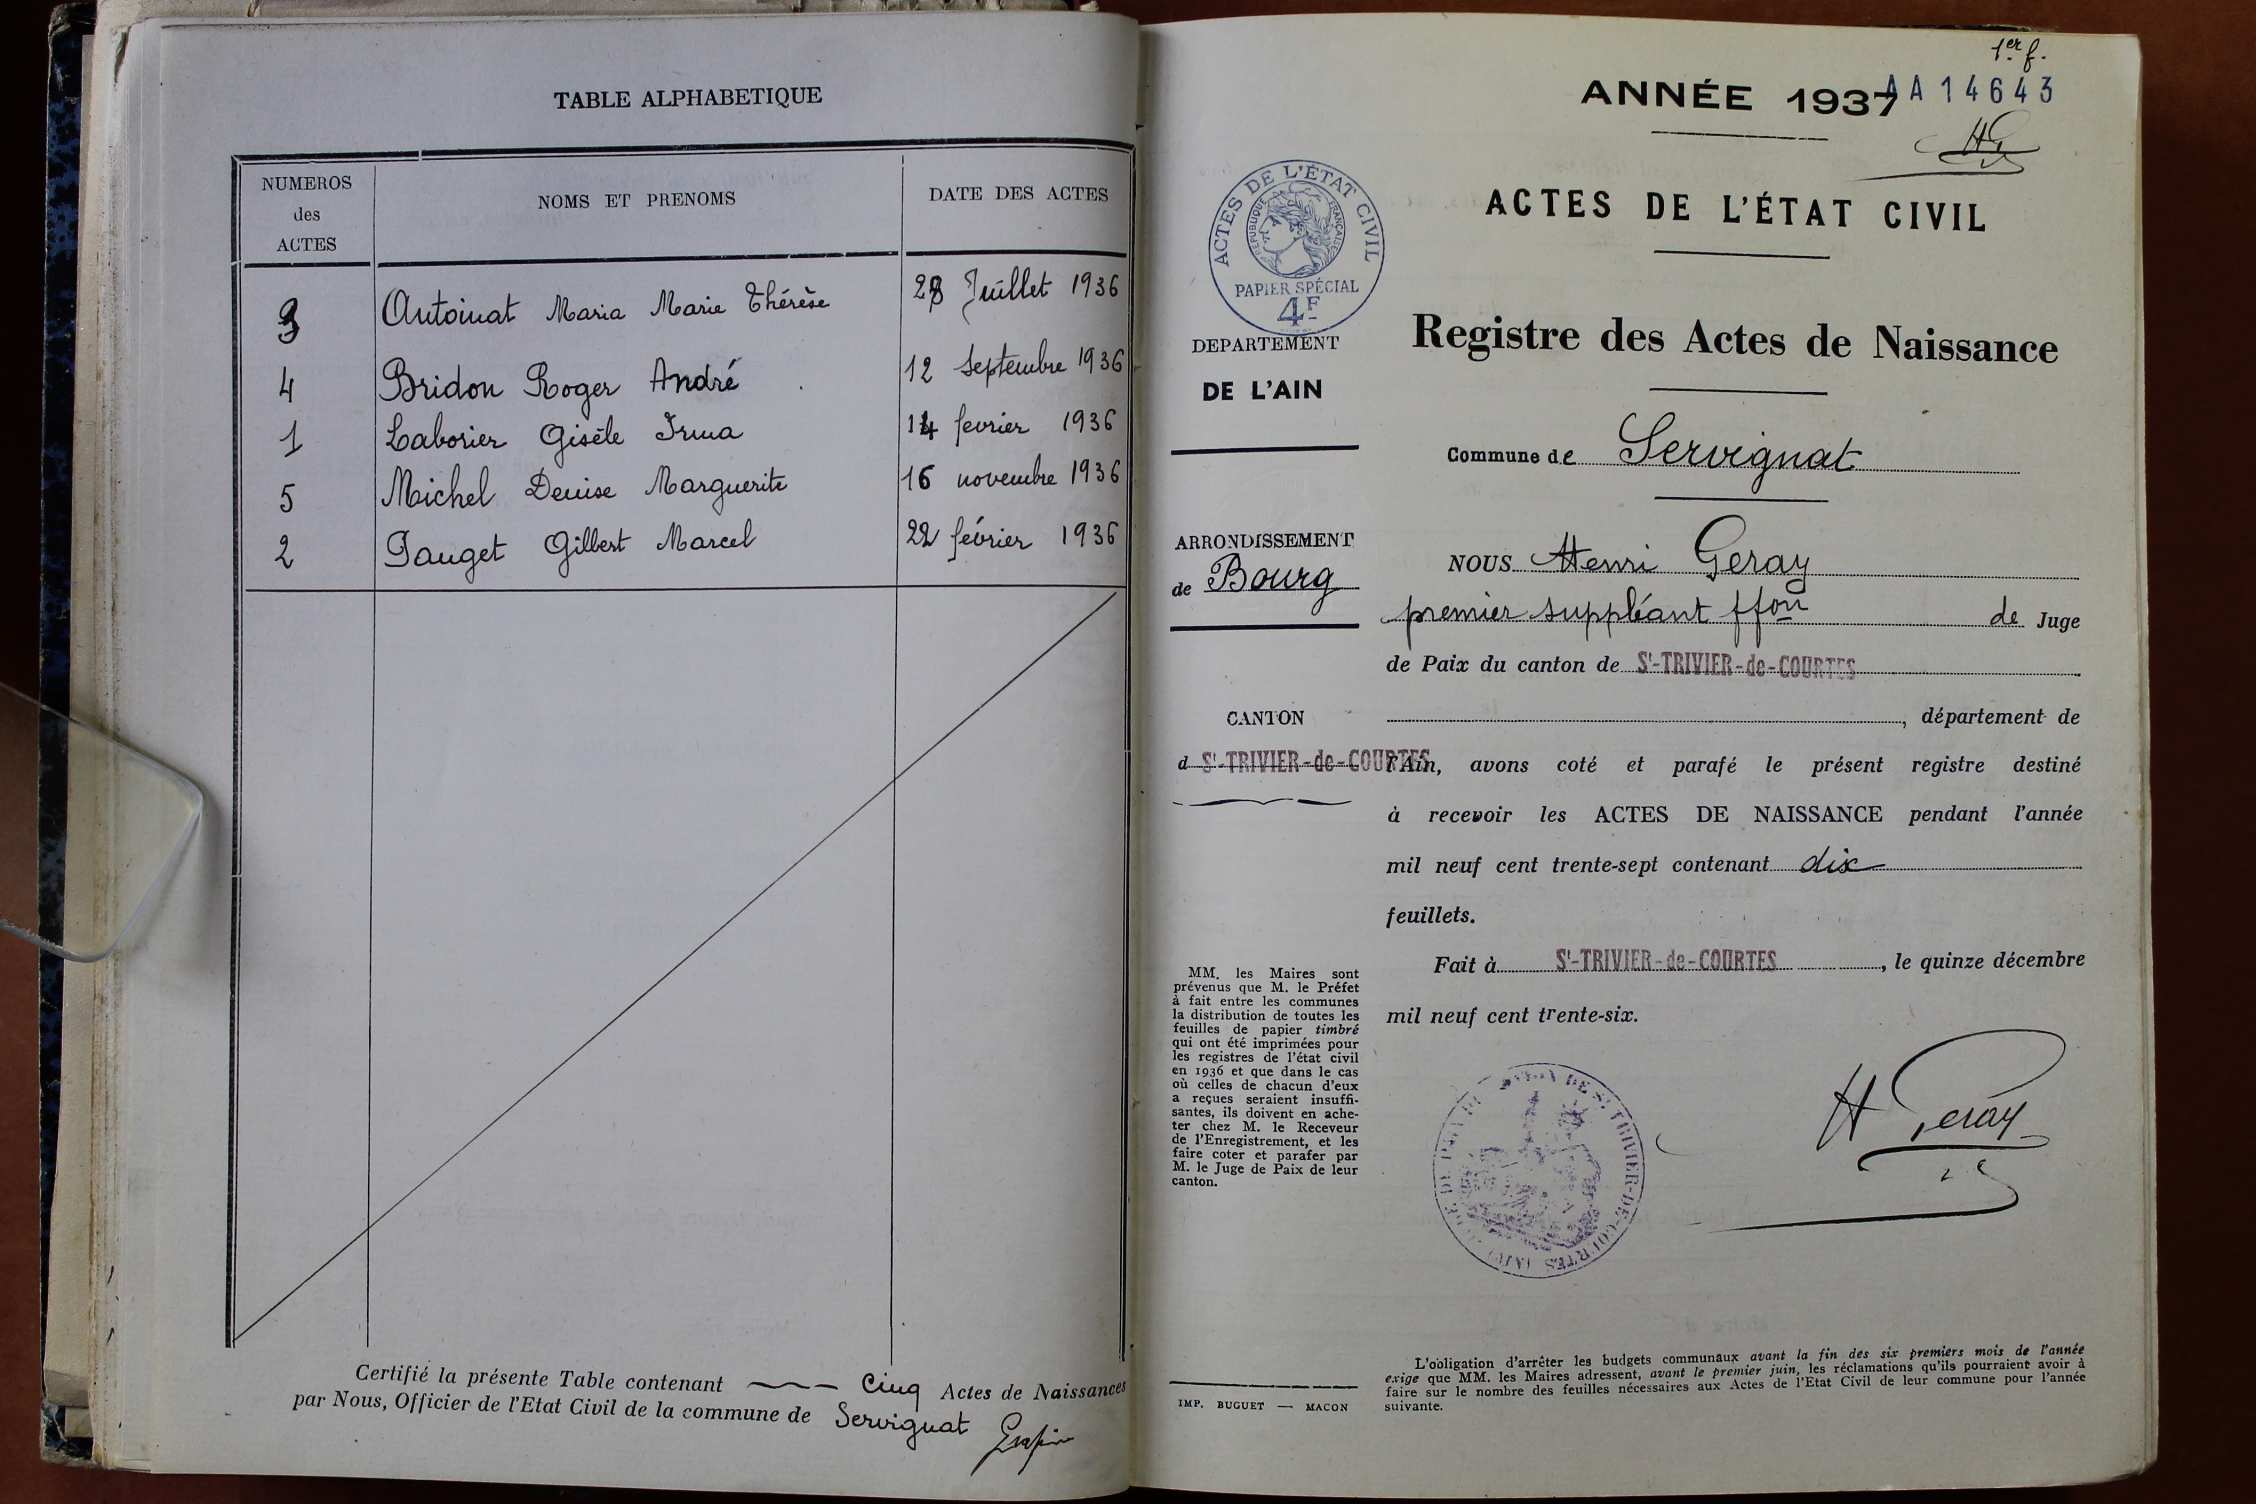 TABLE ALPHABETIQUE
NUMEROS
des
ACTES
NOMS ET PRENOMS
DATE DES ACTES
3 Antoinat Maria Marie Thérèse 28 Juillet 1936
4 Bridon Roger André 12 Septembre 1936
1 Laborier Gisèle Irma 14 fevrier 1936
5 Michel Denise Marguerite 16 novembre 1936
2 Pauget Gilbert Marcel 22 février 1936
Certifié la présente Table contenant cinq Actes de Naissances
par Nous, Officier de l'Etat Civil de la commune de Servignat
1er f.
ANNÉE 1937
AA14643
HG
ACTES DE L'ÉTAT CIVIL
RÉPUBLIQUE FRANÇAISE
PAPIER SPÉCIAL
4F
ACTES DE L'ÉTAT CIVIL
Registre des Actes de Naissance
DEPARTEMENT
DE L'AIN
Commune de Servignat
ARRONDISSEMENT
de Bourg
CANTON
d St-TRIVIER-de-COURTES
NOUS Henri Geray
premier suppléant ffon de Juge
de Paix du canton de St-TRIVIER-de-COURTES
, département de
l'Ain, avons coté et parafé le présent registre destiné
à recevoir les ACTES DE NAISSANCE pendant l'année
mil neuf cent trente-sept contenant dix
feuillets.
Fait à St-TRIVIER-de-COURTES, le quinze décembre
mil neuf cent trente-six.
MM. les Maires sont
prévenus que M. le Préfet
à fait entre les communes
la distribution de toutes les
feuilles de papier timbré
qui ont été imprimées pour
les registres de l'état civil
en 1936 et que dans le cas
où celles de chacun d'eux
a reçues seraient insuffi-
santes, ils doivent en ache-
ter chez M. le Receveur
de l'Enregistrement, et les
faire coter et parafer par
M. le Juge de Paix de leur
canton.
H Geray
DE ST TRIVIER-DE-COURTES
IMP. BUGUET — MACON
L'obligation d'arrêter les budgets communaux avant la fin des six premiers mois de l'année
exige que MM. les Maires adressent, avant le premier juin, les réclamations qu'ils pourraient avoir à
faire sur le nombre des feuilles nécessaires aux Actes de l'Etat Civil de leur commune pour l'année
suivante.